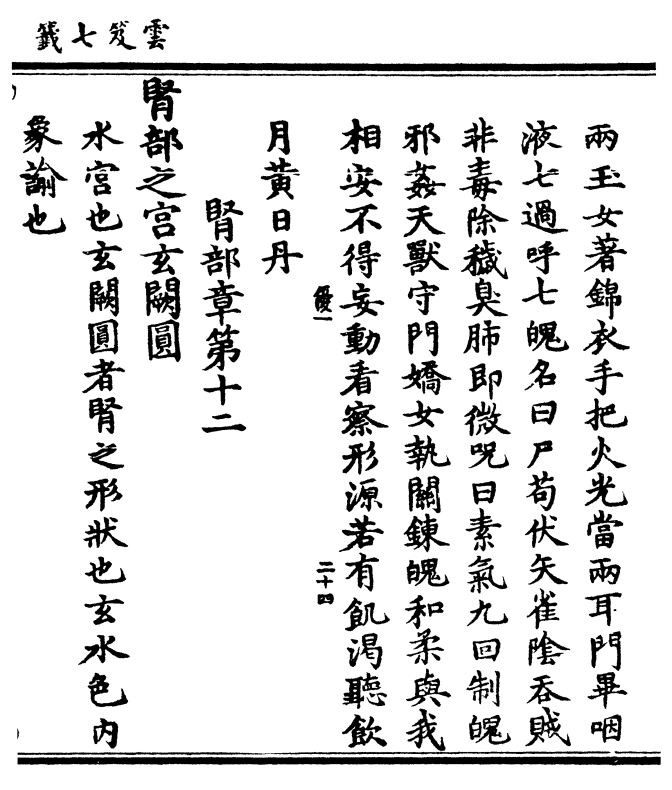 雲笈七籤
兩玉女著錦衣手把火光當兩耳門畢咽
液七過呼七魄名曰尸苟伏矢雀陰吞賊
非毒除穢臭肺即微咒曰素氣九回制魄
邪姦天獸守門嬌女執關鍊魄和柔與我
相安不得妄動看察形源若有飢渴聽飲
優一
二十四
月黃日丹
腎部章第十二
腎部之宮玄闕圓
水宮也玄闕圓者腎之形狀也玄水色內
象諭也